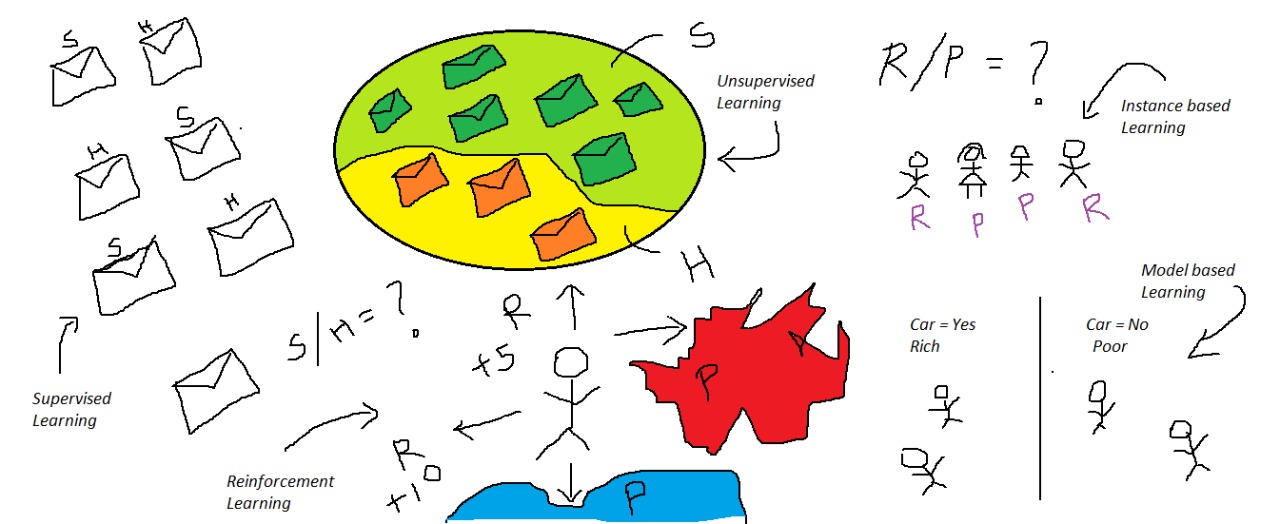 S
H
H
S
S
H
S/H = ?
Supervised
Learning
S
H
Unsupervised
Learning
R
+5
R
+10
Reinforcement
Learning
P
P
P
R/P = ?
Instance based
Learning
R P P R
Model based
Learning
Car = Yes
Rich
Car = No
Poor